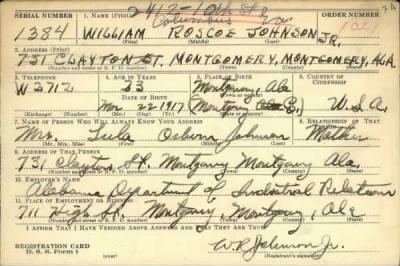 2412-10th Ave
Columbus Ga
SERIAL NUMBER 1. NAME (Print) ORDER NUMBER
1384 WILLIAM ROSCOE JOHNSON JR. 1021
(First) (Middle) (Last)
2. ADDRESS (Print)
731 CLAYTON ST. MONTGOMERY, MONTGOMERY, ALA.
(Number and street or R. F. D. number) (Town) (County) (State)
3. TELEPHONE 4. AGE IN YEARS 5. PLACE OF BIRTH 6. COUNTRY OF CITIZENSHIP
W 3712 23 Montgomery, Ala
DATE OF BIRTH (Town or county)
Mar 22 1917 Montgomery U.S.A.
(Mo.) (Day) (Yr.) (State or country)
7. NAME OF PERSON WHO WILL ALWAYS KNOW YOUR ADDRESS 8. RELATIONSHIP OF THAT PERSON
Mrs. Osborn Johnson Mother
(Mr., Mrs., Miss) (First) (Middle) (Last)
9. ADDRESS OF THAT PERSON
731 Clayton St. Montgomery Montgomery Ala.
(Number and street or R. F. D. number) (Town) (County) (State)
10. EMPLOYER'S NAME
Alabama Department of Industrial Relations
11. PLACE OF EMPLOYMENT OR BUSINESS
711 High St. Montgomery, Montgomery, Ala
(Number and street or R. F. D. number) (Town) (County) (State)
I AFFIRM THAT I HAVE VERIFIED ABOVE ANSWERS AND THAT THEY ARE TRUE.
REGISTRATION CARD
D. S. S. Form 1
W. R. Johnson Jr.
(Registrant's signature)